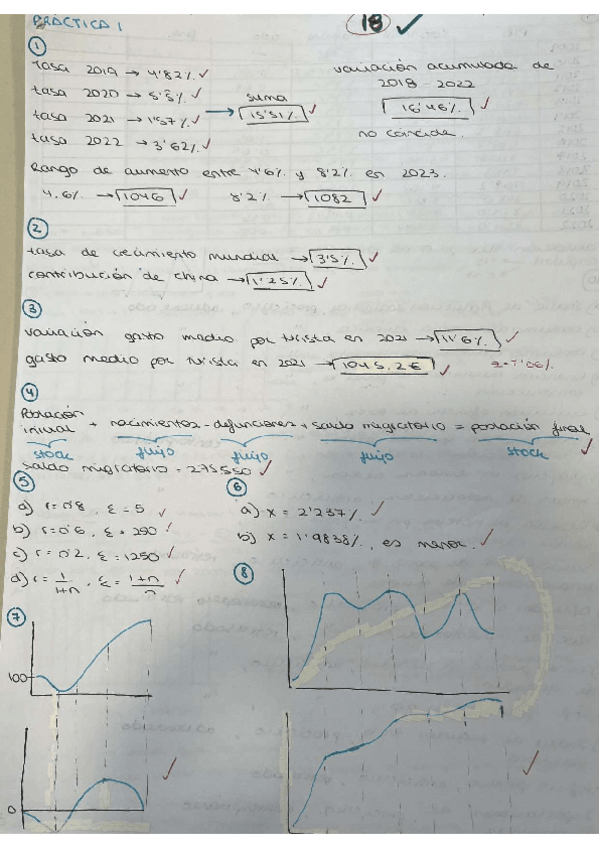 PRÁCTICA 1
18
1
tasa 2019 → 4'82%
tasa 2020 → 5'5%
tasa 2021 → 1'57%
tasa 2022 → 3'62%
suma
15'51%
variación acumulada de
2018 - 2022
16'46%
no coincide.
Rango de aumento entre 4'6% y 8'2% en 2023.
4.6% → 1046
8'2% → 1082
2
tasa de crecimiento mundial → 3'5%
contribución de China → 1'25%
3
variación gasto medio por turista en 2021 → 11'6%
gasto medio por turista en 2021 → 1045.2€
4
Población
inicial + nacimientos - defunciones + saldo migratorio = población final
stock flujo flujo flujo stock
saldo migratorio = 275550
5
a) r = 0'8, ε = 5
b) r = 0'6, ε = 250
c) r = 0'2, ε = 1250
d) r = 1/1+n, ε = 1+n/n
6
a) x = 2'237%
b) x = 1'9838%, es menor.
7
100
0
8